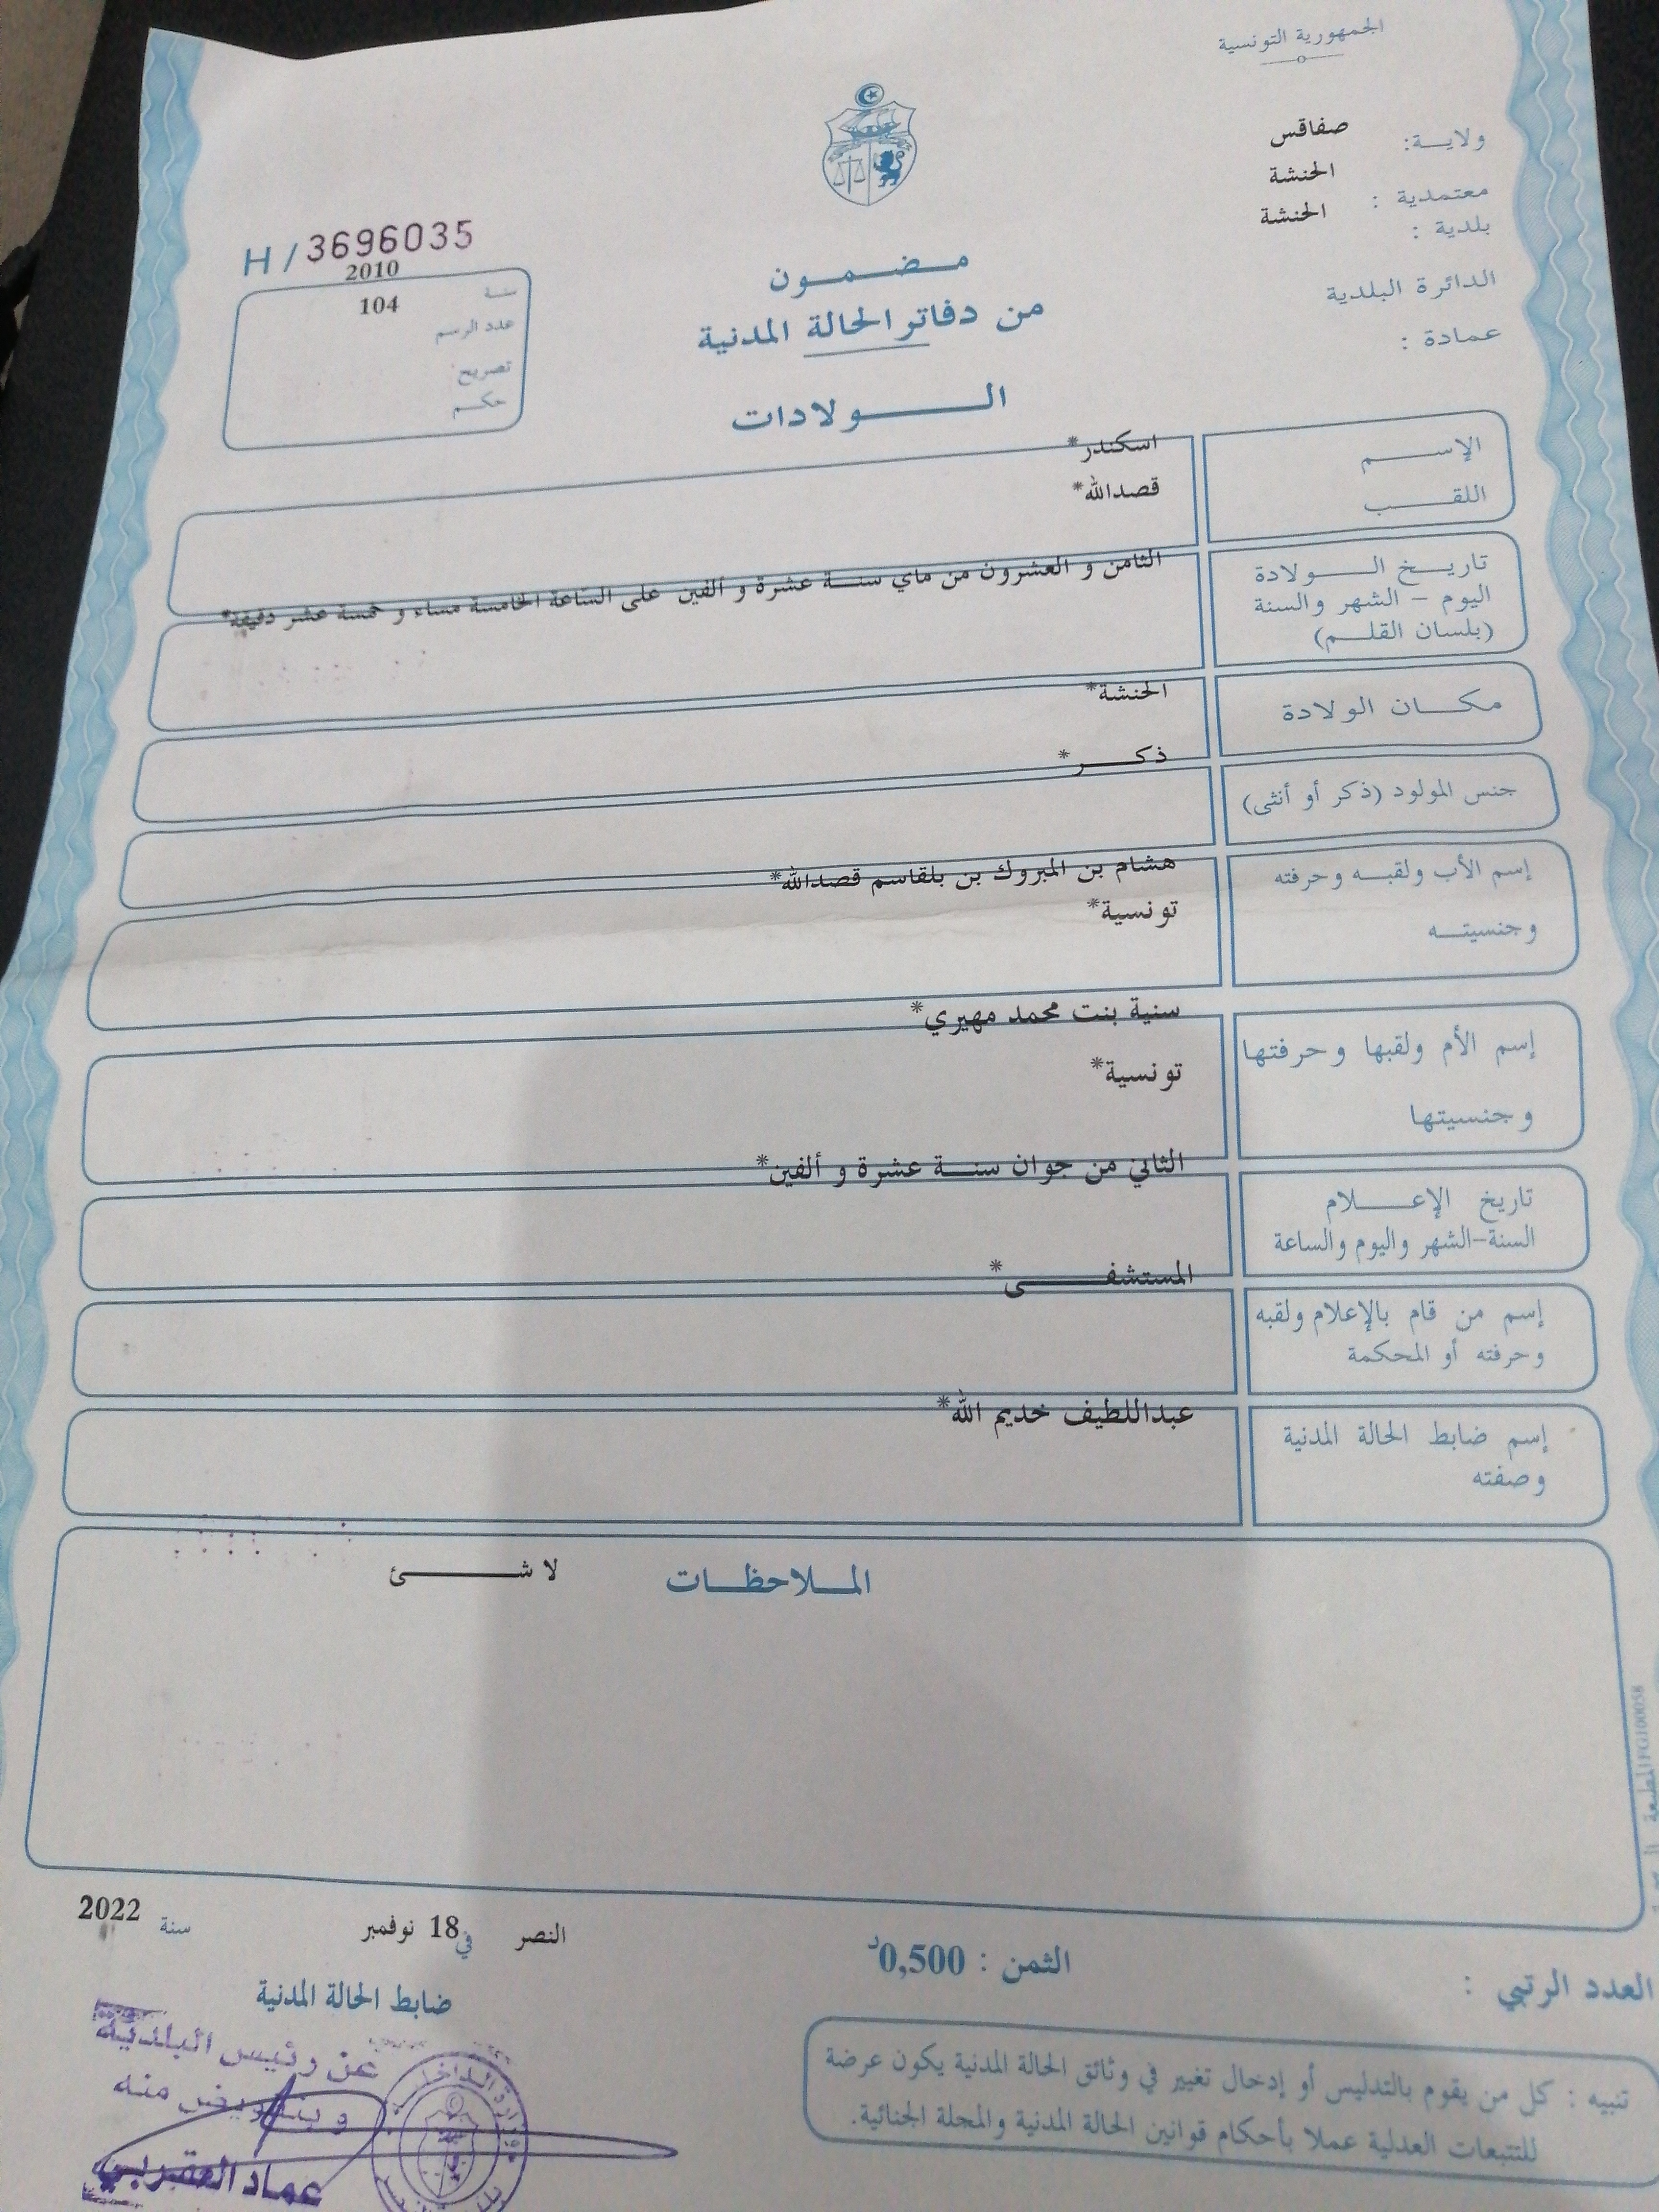 الجمهورية التونسية
ولاية: صفاقس
معتمدية : الحنشة
بلدية : الحنشة
الدائرة البلدية
عمادة :
H / 3696035
سنة 2010
عدد الرسم 104
تصريح
حكم
مضمون
من دفاتر الحالة المدنية
الولادات
الإسم اسكندر*
اللقب قصدالله*
تاريخ الولادة
اليوم - الشهر والسنة
(بلسان القلم)
الثامن و العشرون من ماي سنة عشرة و ألفين على الساعة الخامسة مساء و خمسة عشر دقيقة*
مكان الولادة الحنشة*
جنس المولود (ذكر أو أنثى) ذكر*
إسم الأب ولقبه وحرفته هشام بن المبروك بن بلقاسم قصدالله*
وجنسيته تونسية*
إسم الأم ولقبها وحرفتها سنية بنت محمد مهيري*
وجنسيتها تونسية*
تاريخ الإعلام الثاني من جوان سنة عشرة و ألفين*
السنة-الشهر واليوم والساعة
إسم من قام بالإعلام ولقبه المستشفى*
وحرفته أو المحكمة
إسم ضابط الحالة المدنية عبداللطيف خديم الله*
وصفته
الملاحظات لا شئ
النصر في 18 نوفمبر سنة 2022
ضابط الحالة المدنية
الثمن : 0,500د
العدد الرتبي :
تنبيه : كل من يقوم بالتدليس أو إدخال تغيير في وثائق الحالة المدنية يكون عرضة
للتتبعات العدلية عملا بأحكام قوانين الحالة المدنية والمجلة الجنائية.
عن رئيس البلدية
وبتفويض منه
عماد العقربي